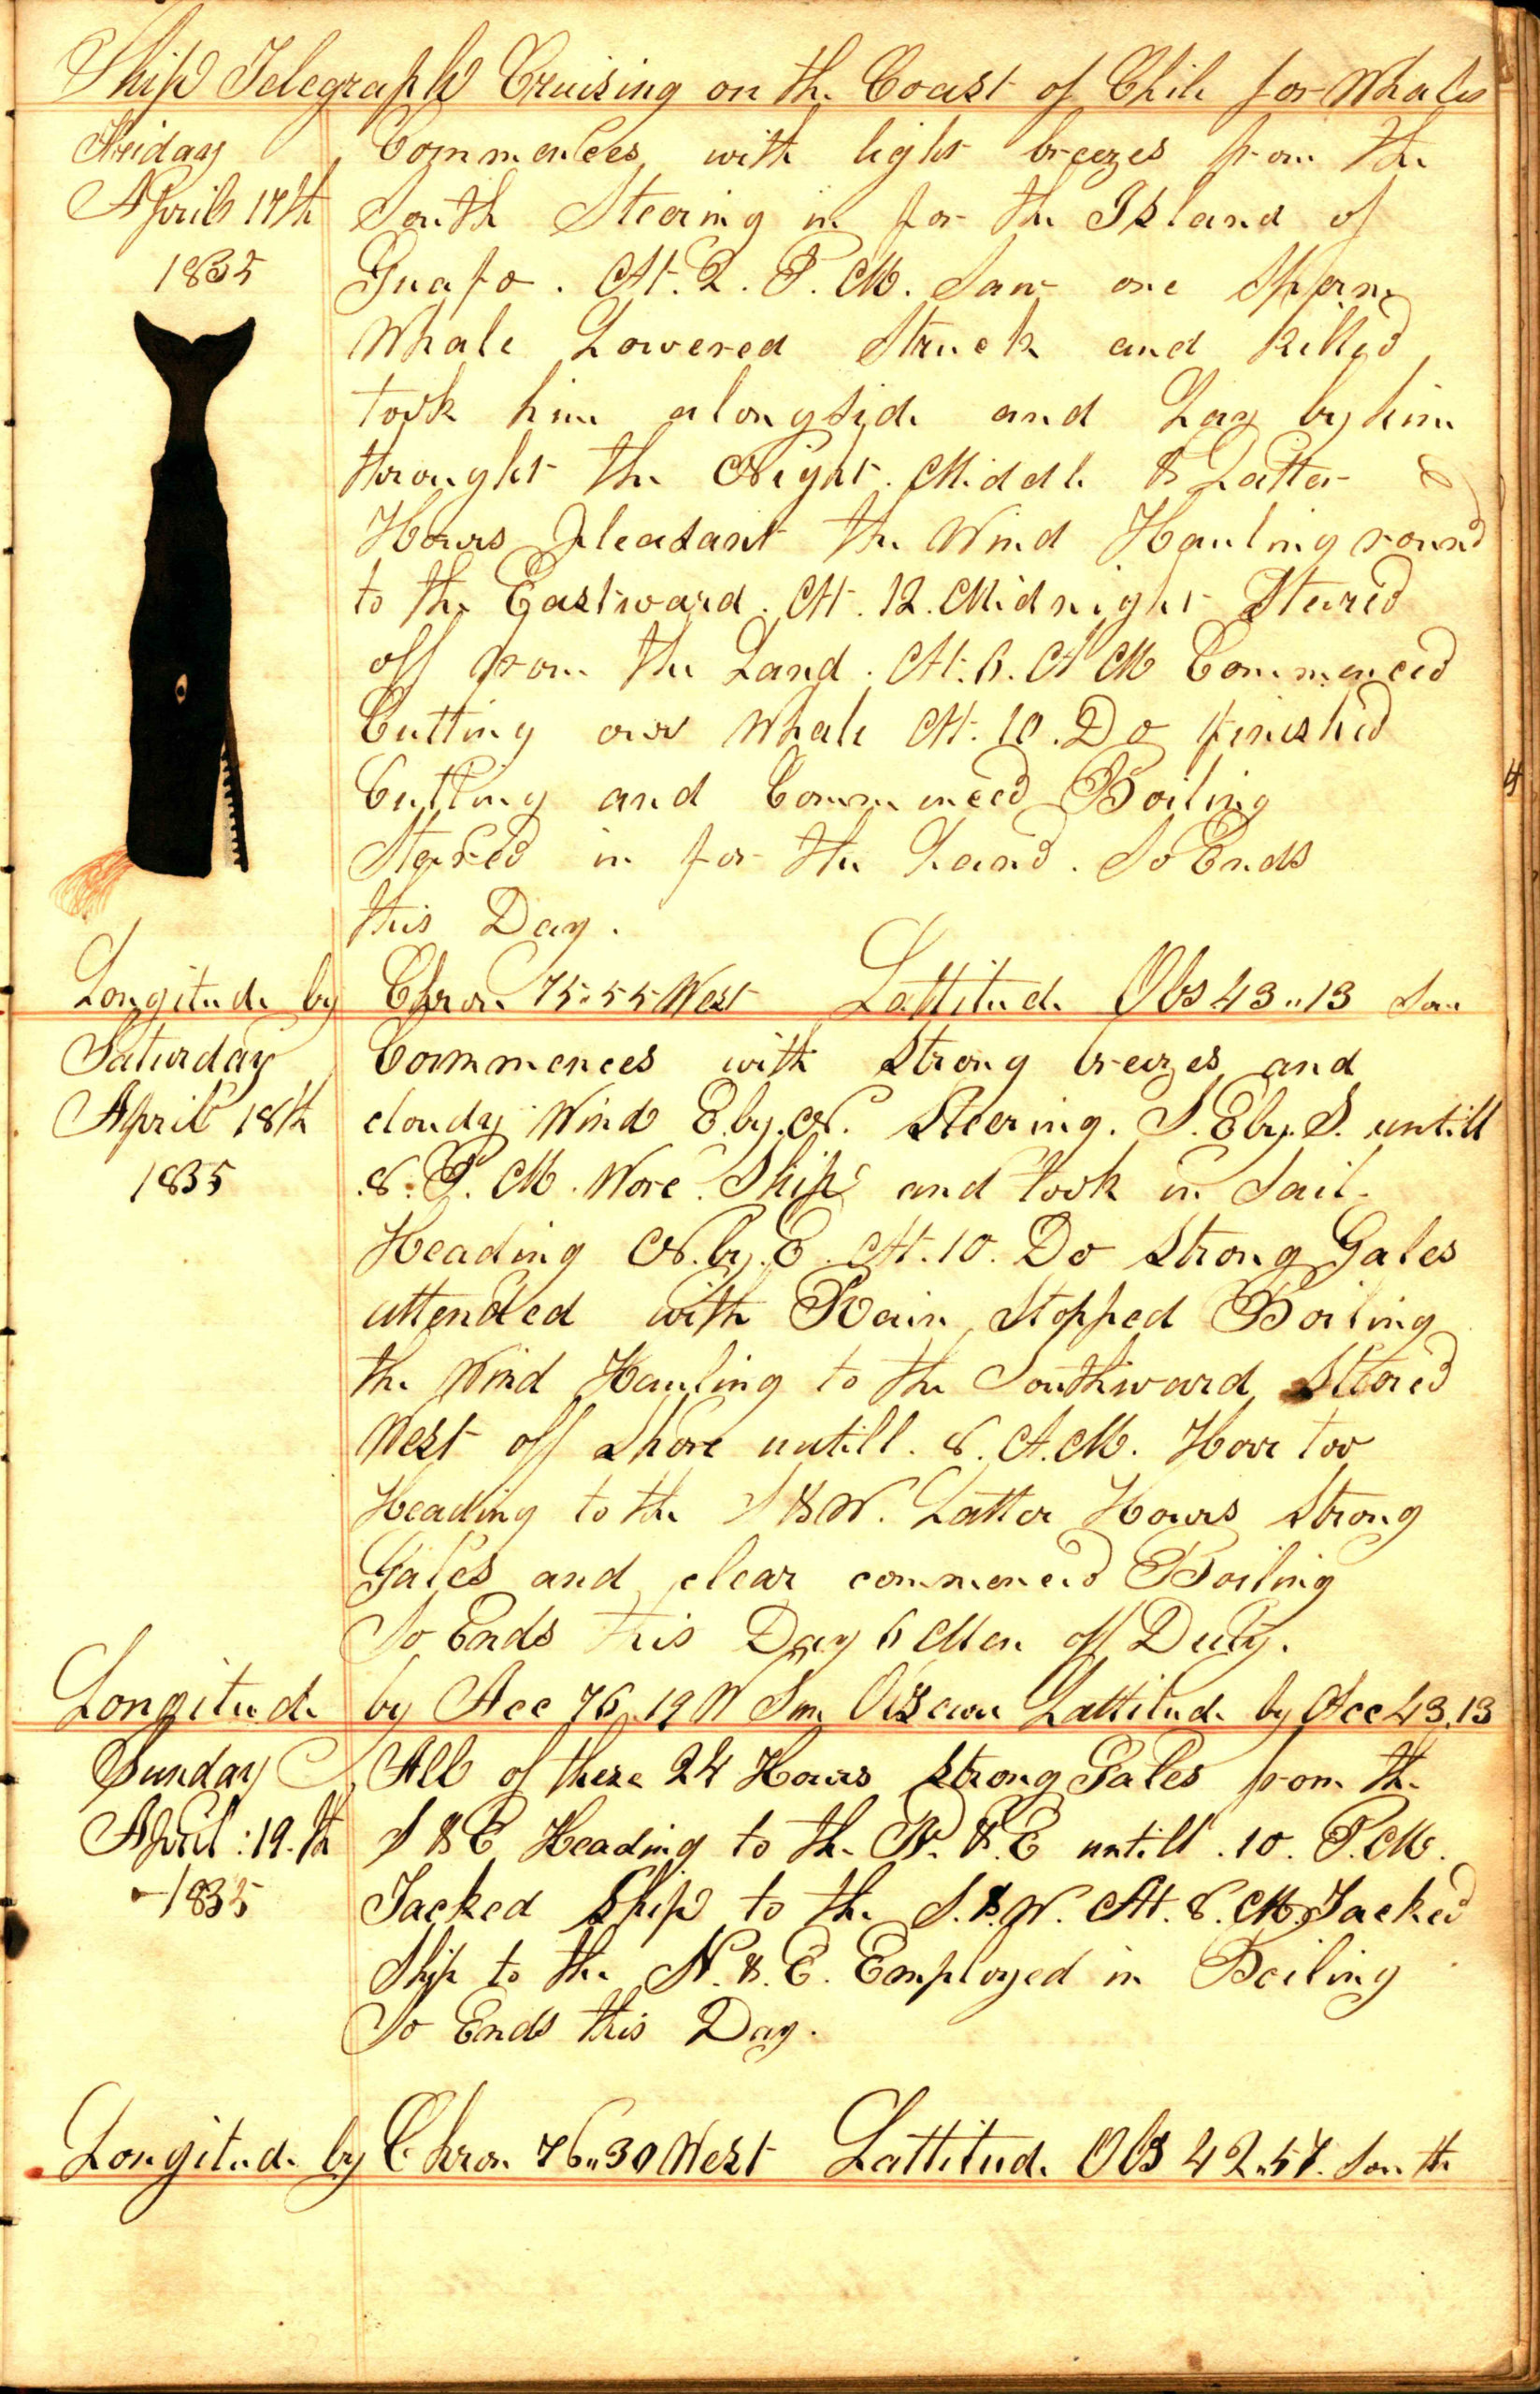 Ship Telegraph Cruising on the Coast of Chili for Whales
Friday Commences with light breezes from the
April 17th South Steering in for the Island of
1835 Guafo. At. 2. P. M. Saw one Sperm
Whale Lowered Struck and killed
took him alongside and Lay by him
throught the Night. Middle & Latter
Hours Pleasant the Wind Hauling round
to the Eastward. At. 12. Midnight Steared
off from the Land. At. 6. A M Commenced
Cutting our Whale At. 10. Do finished
Cutting and Commenced Boiling
Steared in for the Land. So Ends
this Day.
Longitude by Chron 75"55 West Lattitude Obs 43"13 Sou
Saturday Commences with Strong breezes and
April 18th cloudy Wind E.by.N. Steering. S.Eby.S. untill
1835 8. P. M. Wore Ship and took in Sail.
Heading N.by.E. At. 10. Do Strong Gales
attended with Rain, Stopped Boiling
the Wind Hauling to the Southward Steared
West off Shore untill. 8. A.M. Hove too
Heading to the S & W. Latter Hours Strong
Gales and clear commenced Boiling
So Ends this Day 6 Men off Duty.
Longitude by Acc 76"19 W Sun Obscure Lattitude by Acc 43.13
Sunday All of these 24 Hours Strong Gales from the
April: 19.th S & E Heading to the N. & E untill. 10. P.M.
1835 Tacked Ship to the S. & W. At. 8. M. Tacked
Ship to the N. & E. Employed in Boiling
So Ends this Day.
Longitude by Chron 76"30 West Lattitude Obs 42"57. South